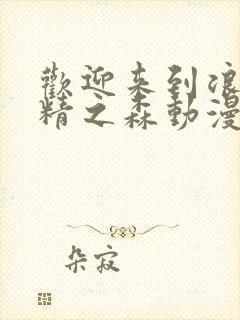 歡迎來到浪
精之森動漫
朵寂